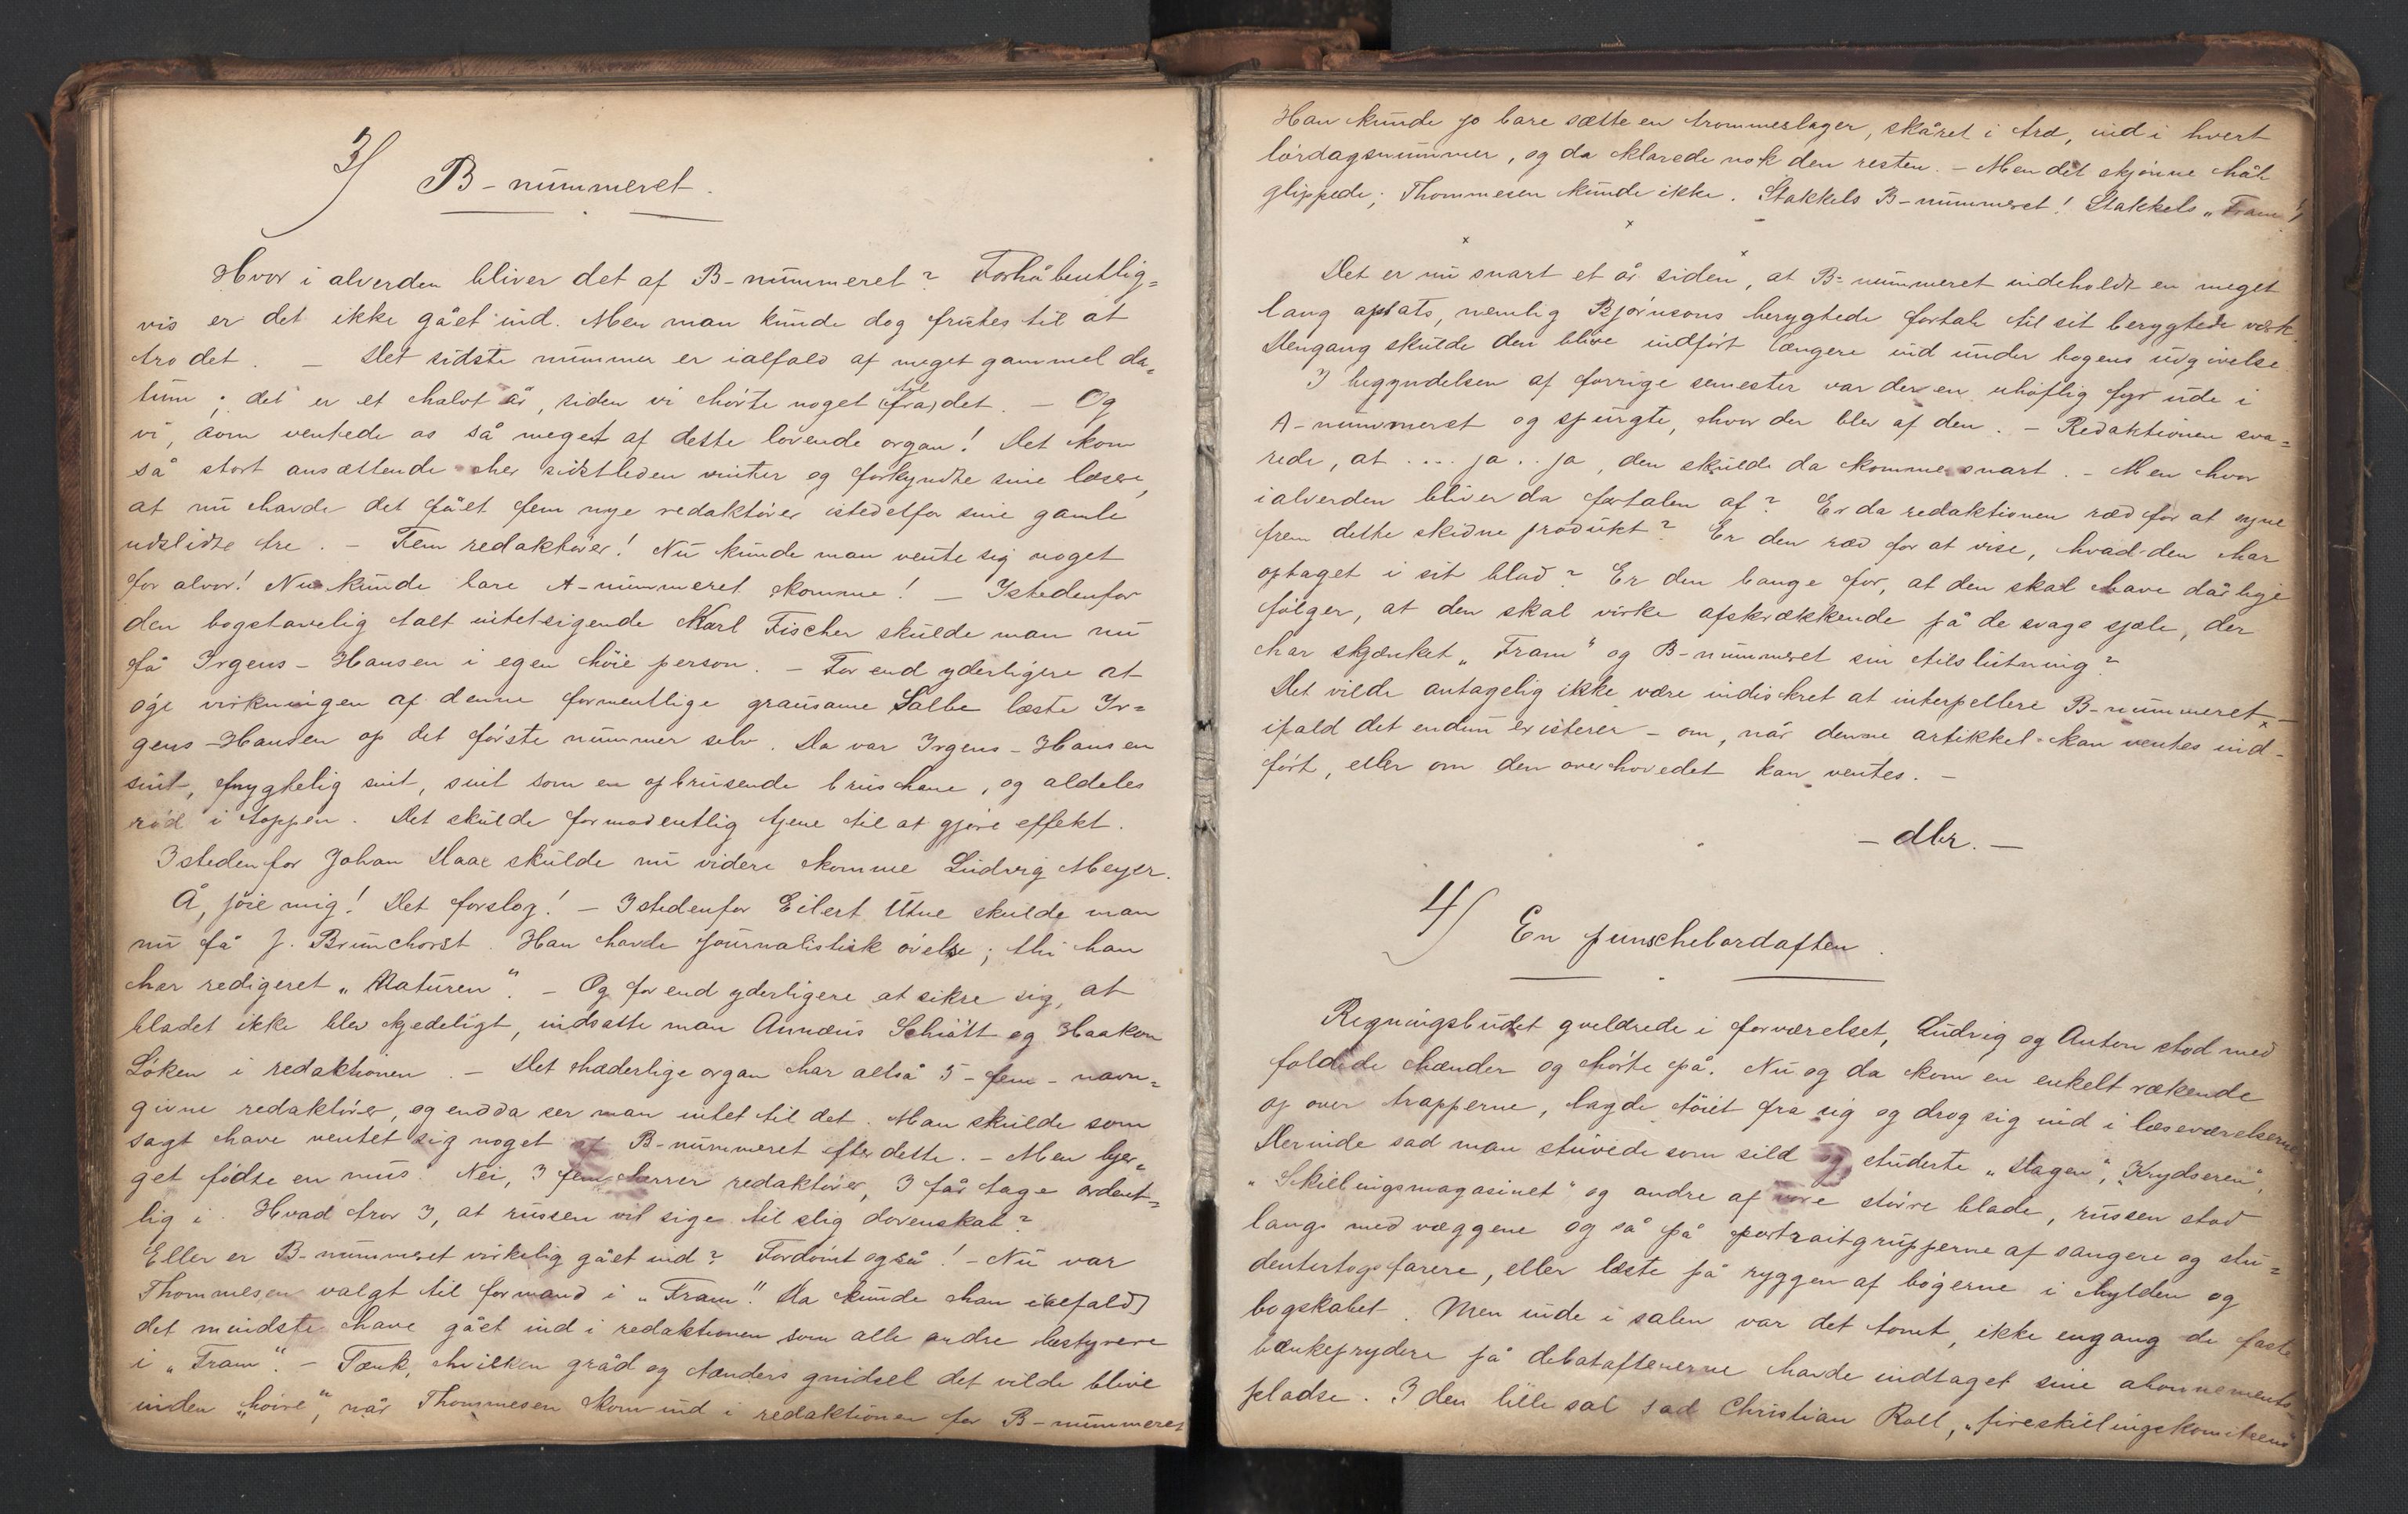 3) B-nummeret.
Hvor i alverden bliver det af B-nummeret? Forhåbentlig=
vis er det ikke gået ind. Men man kunde dog fristes til at
tro det. — Det sidste nummer er ialfald af meget gammel da=
tum; det er et halvt år, siden vi hørte noget (fra) til det. — Og
vi, som ventede os så meget af dette lovende organ! Det kom
så stort ansættende her sidstleden vinter og forkyndte sine læsere,
at nu havde det fået fem nye redaktører istedetfor sine gamle
udslidte tre. — Fem redaktører! Nu kunde man vente sig noget
for alvor! Nu kunde bare A-nummeret komme! — Istedenfor
den bogstavelig talt intetsigende Karl Fischer skulde man nu
få Irgens-Hansen i egen høie person. — For end yderligere at
øge virkningen af denne formentlige grausame Salbe læste Ir=
gens-Hansen op det første nummer selv. Da var Irgens-Hansen
sint, frygtelig sint, sint som en opbrusende brushane, og aldeles
rød i toppen. Det skulde formodentlig tjene til at gjøre effekt.
Istedenfor Johan Daae skulde nu videre komme Ludvig Meyer.
Å, jøie mig! Det forslog! — Istedenfor Eilert Utne skulde man
nu få J. Brunchorst. Han havde journalistisk øvelse; thi han
har redigeret „Naturen“. — Og for end yderligere at sikre sig, at
bladet ikke blev kjedeligt, indsatte man Annæus Schiøtt og Haakon
Løken i redaktionen. — Det hæderlige organ har altså 5 - fem - navn=
givne redaktører, og endda ser man intet til det. Man skulde som
sagt have ventet sig noget af B-nummeret efter dette. — Men bjer=
get fødte en mus. Nei, I fem herrer redaktører, I får tage ordent=
lig i. Hvad tror I, at russen vil sige til slig dovenskab?
Eller er B-nummeret virkelig gået ind? Fordømt også! — Nu var
Thommesen valgt til formand i „Fram“. Da kunde han ialfald
det mindste have gået ind i redaktionen som alle andre bestyrere
i „Fram“. — Tænk, hvilken gråd og tænders gnidsel det vilde blive
inden „høire“, når Thommesen kom ind i redaktionen for B-nummeret
Han kunde jo bare sætte en trommeslager, skåret i træ, ind i hvert
lørdagsnummer, og da klarede nok den resten. — Men dét skjønne håb
glippede; Thommesen kunde ikke. Stakkels B-nummeret! Stakkels „Fram“!
x x x
Det er nu snart et år siden, at B-nummeret indeholdt en meget
lang opsats, nemlig Bjørnsons berygtede fortale til sit berygtede verk.
Dengang skulde den blive indført længere ind under bogens udgivelse.
I begyndelsen af forrige semester var der en uhøflig fyr ude i
A-nummeret og spurgte, hvor der blev af den. — Redaktionen sva=
rede, at .... ja .. ja, den skulde da komme snart. — Men hvor
ialverden bliver da fortalen af? Er da redaktionen ræd for at syne
frem dette skidne produkt? Er den ræd for at vise, hvad den har
optaget i sit blad? Er den bange for, at den skal have dårlige
følger, at den skal virke afskrækkende på de svage sjæle, der
har skjænket „Fram“ og B-nummeret sin tilslutning?
Det vilde antagelig ikke være indiskret at interpellere B-nummeret —
ifald det endnu existerer — om, når denne artikkel kan ventes ind-
ført, eller om den overhovedet kan ventes. —
— dbr. —
4) En punschebordaften.
Regningsbudet gveldrede i forværelset, Ludvig og Anton stod med
foldede hænder og hørte på. Nu og da kom en enkelt rækende
op over trapperne, lagde tøiet fra sig og drog sig ind i læseværelserne.
Derinde sad man stuvede som sild og studerte „Dagen“, „Krydseren“,
„Skillingsmagasinet“ og andre af vore større blade, russen stod
langs med væggene og så på portraitgrupperne af sangere og stu=
dentertogsfarere, eller læste på ryggen af bøgerne i hylden og
bogskabet. Men inde i salen var det tomt, ikke engang de faste
bænkeprydere på debataftenerne havde indtaget sine abonnements-
pladse. I den lille sal sad Christian Roll, „fireskillingskomiteens“